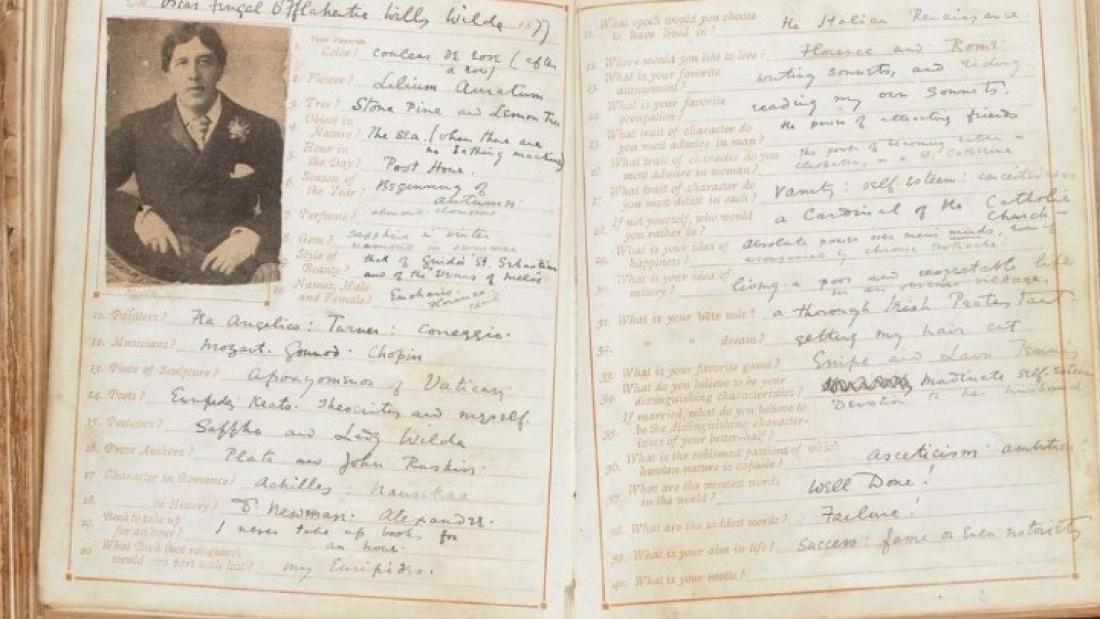 Oscar Fingal O'Fflahertie Wills Wilde 1877
Your Favorite
1. Color? couleur de rose (after
a rose)
2. Flower? Lilium Auratum
3. Tree? Stone Pine and Lemon Tree
4. Object in
Nature? The Sea. (when there are
no bathing machines)
5. Hour in
the Day? Post Hour.
6. Season of
the Year? Beginning of
autumn.
7. Perfume? almond blossoms
8. Gem? sapphire in winter
diamond in summer
9. Style of
Beauty? that of Guido's St. Sebastian
and of the Venus of Melos
10. Names, Male
and Female? Eucharis
Florence
11. Painters? Fra Angelico: Turner: Correggio.
12. Musicians? Mozart. Gounod. Chopin
13. Piece of Sculpture? Apoxyomenos of Vatican
14. Poets? Euripides Keats. Theocritus and myself.
15. Poetesses? Sappho and Lady Wilde
16. Prose Authors? Plato and John Ruskin.
17. Character in Romance? Achilles: Nausikaa
18. in History? Dr Newman. Alexander.
19. Book to take up
for an hour? I never take up books for
an hour.
20. What Book (not religious)
would you part with last? my Euripides.
21. What epoch would you choose
to have lived in? the Italian Renaissance.
22. Where would you like to live? Florence and Rome
23. What is your favorite
amusement? writing sonnets, and riding.
24. What is your favorite
occupation? reading my own sonnets.
25. What trait of character do
you most admire in man? the power of attracting friends
26. What trait of character do you
most admire in woman? the power of becoming either a
Cleopatra, or a St. Catherine
27. What trait of character do
you most detest in each? vanity: self esteem: conceitedness
28. If not yourself, who would
you rather be? a Cardinal of the Catholic
Church
29. What is your idea of
happiness? absolute power over men's minds, even if
accompanied by chronic toothache
30. What is your idea of
misery? living a poor and respectable life
in an obscure village.
31. What is your bête noir? a thorough Irish Protestant
32. " " dream? getting my hair cut
33. What is your favorite game? Snipe and Lawn Tennis
34. What do you believe to be your
distinguishing characteristics? inordinate self-esteem
35. If married, what do you believe to
be the distinguishing character-
istics of your better-half? Devotion to her husband
36. What is the sublimest passions of which
human nature is capable? asceticism: ambition!
37. What are the sweetest words
in the world? Well Done!
38. What are the saddest words? Failure!
39. What is your aim in life? success: fame or even notoriety
40. What is your motto?